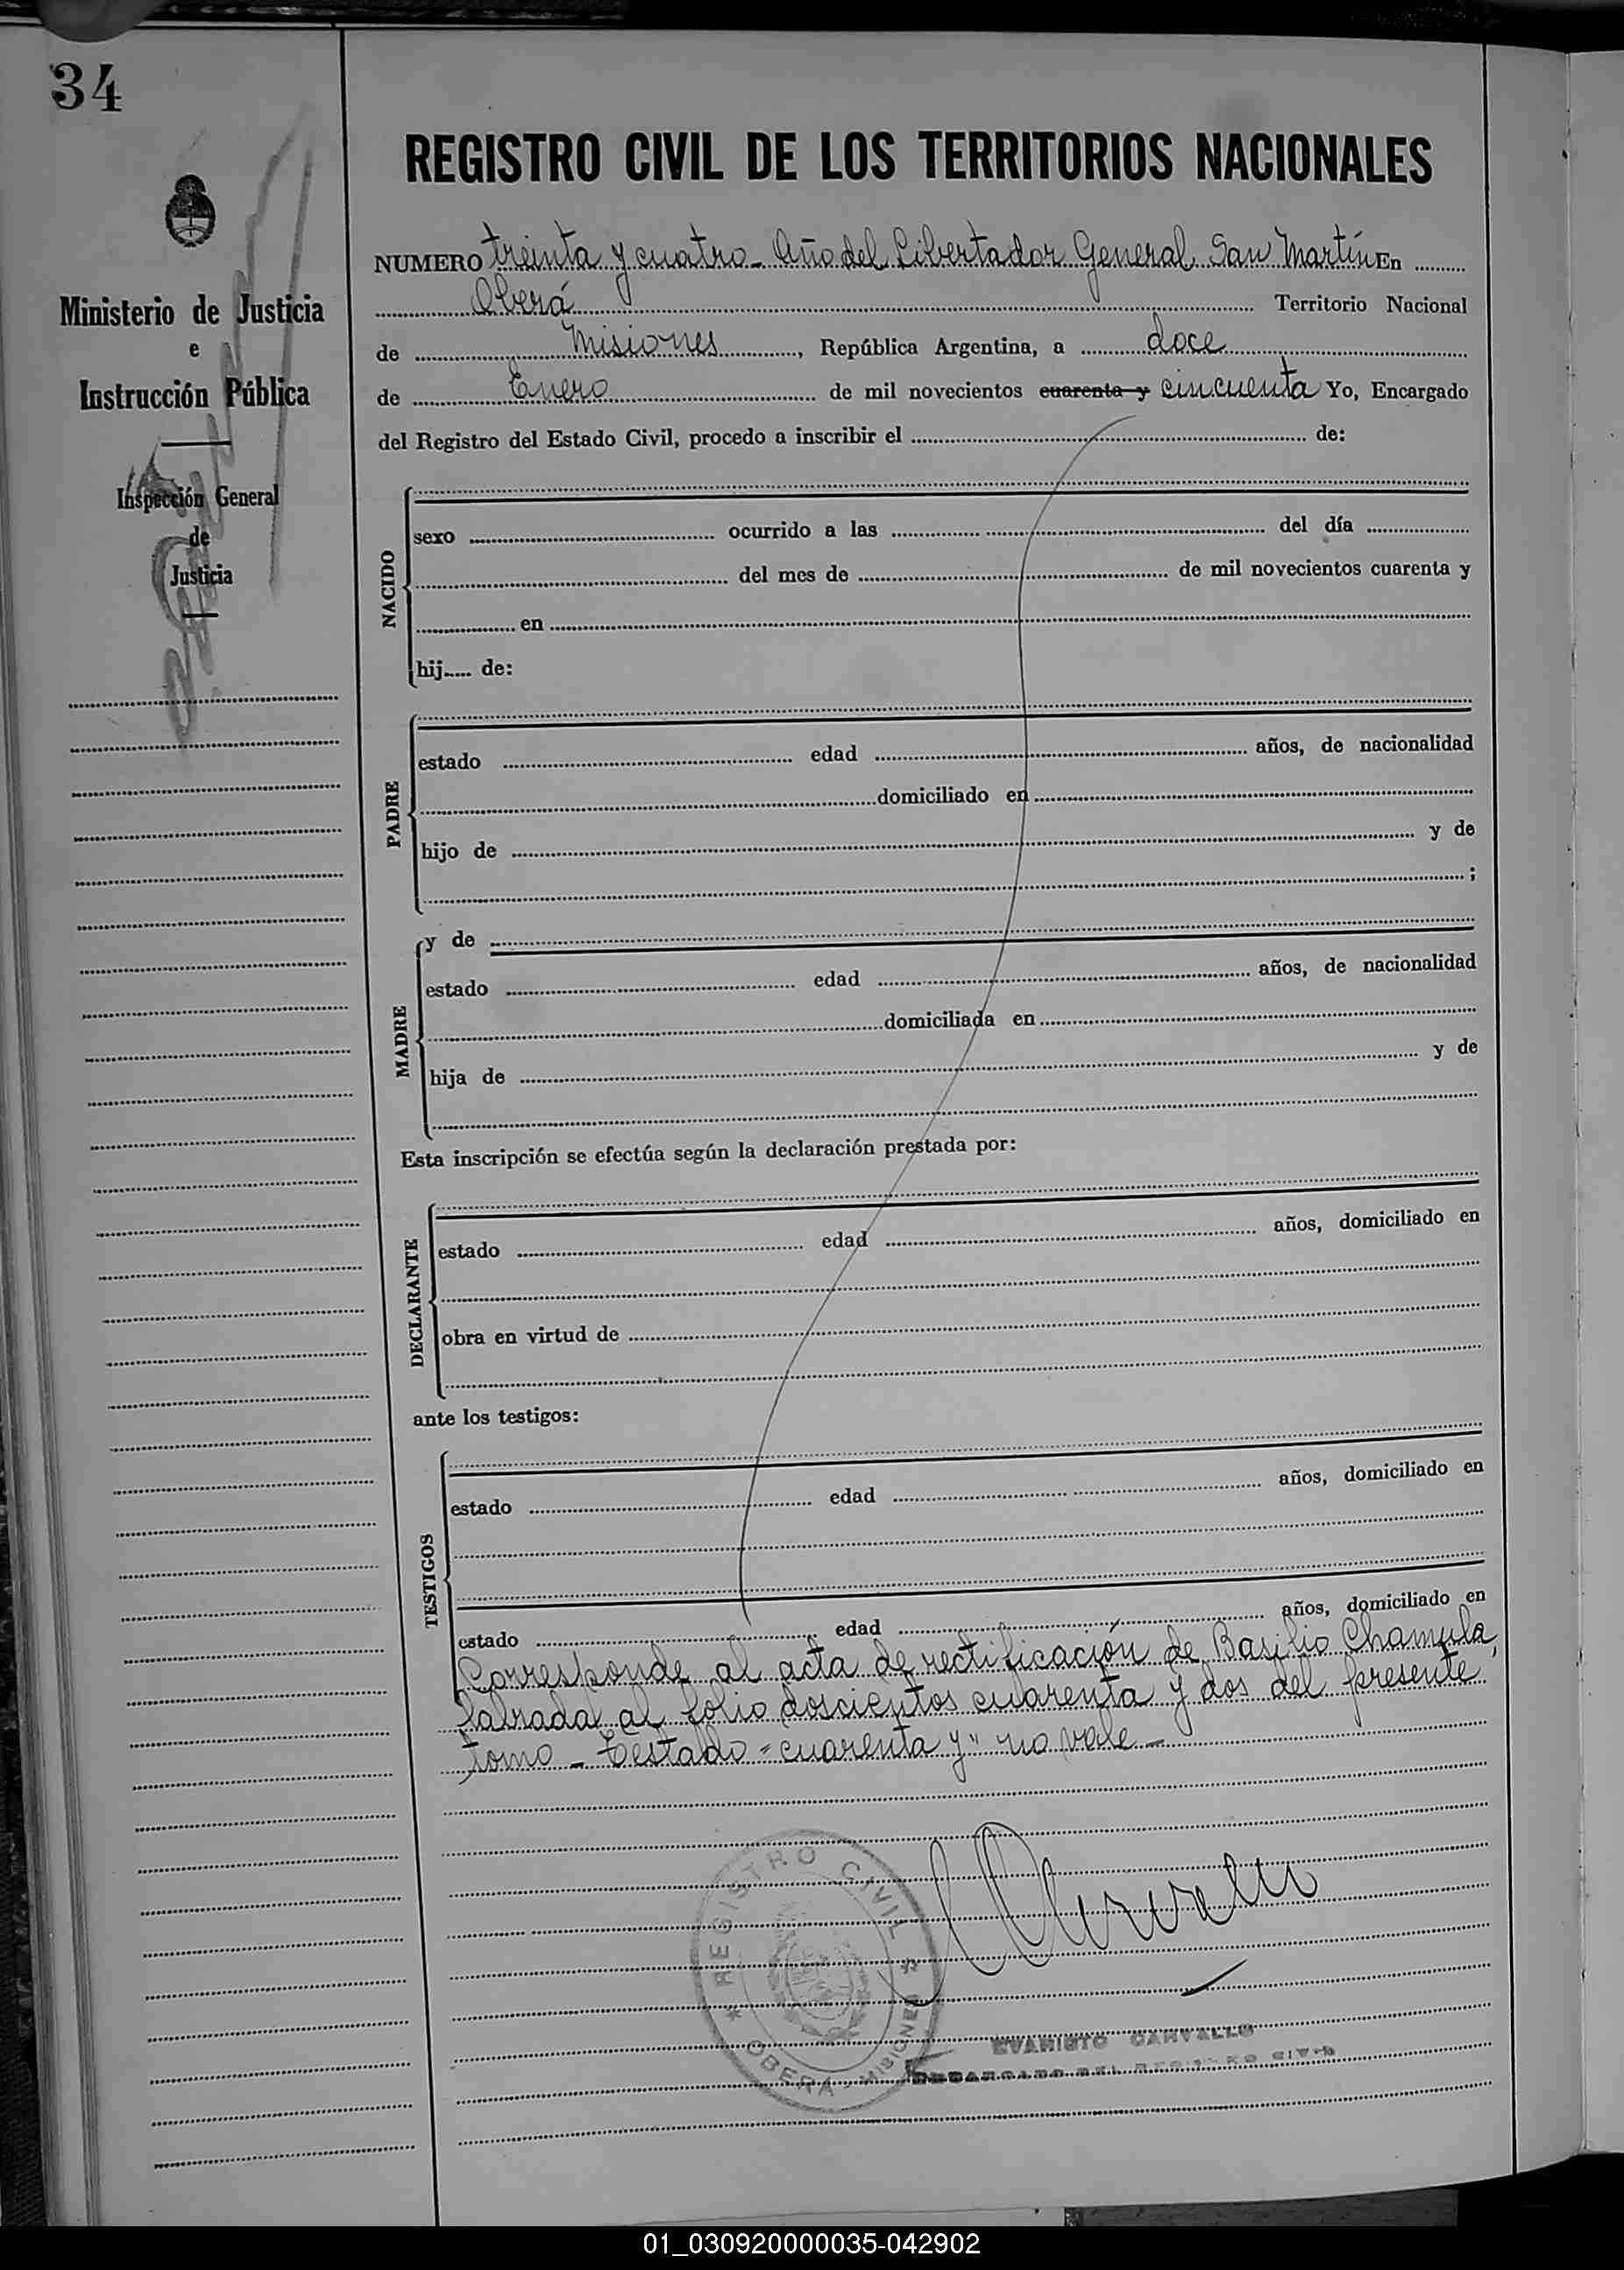 34
REGISTRO CIVIL DE LOS TERRITORIOS NACIONALES
Ministerio de Justicia
e
Instrucción Pública
Inspección General
de
Justicia
NUMERO treinta y cuatro - Año del Libertador General San Martín En
Oberá Territorio Nacional
de Misiones, República Argentina, a doce
de Enero de mil novecientos cuarenta y cincuenta Yo, Encargado
del Registro del Estado Civil, procedo a inscribir el de:
NACIDO
sexo ocurrido a las del día
del mes de de mil novecientos cuarenta y
en
hij..... de:
PADRE
estado edad años, de nacionalidad
domiciliado en
hijo de y de
;
MADRE
y de
estado edad años, de nacionalidad
domiciliada en
hija de y de
Esta inscripción se efectúa según la declaración prestada por:
DECLARANTE
estado edad años, domiciliado en
obra en virtud de
ante los testigos:
TESTIGOS
estado edad años, domiciliado en
estado edad años, domiciliado en
Corresponde al acta de rectificación de Basilio Chamula,
labrada al folio doscientos cuarenta y dos del presente
tomo - Testado "cuarenta y" no vale -
REGISTRO CIVIL
OBERÁ - MISIONES
EVARISTO CARVALLO
ENCARGADO DEL REGISTRO CIVIL
01_030920000035-042902